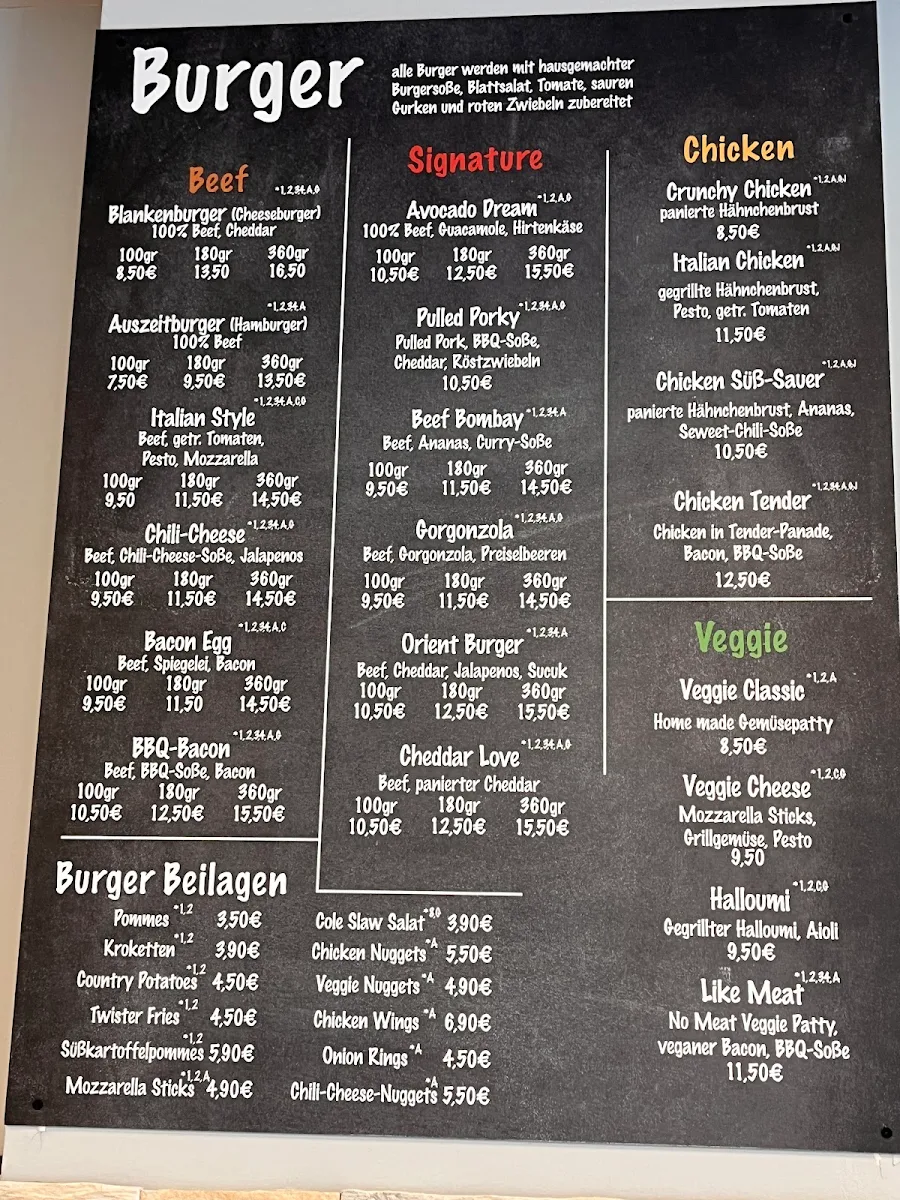 Burger
alle Burger werden mit hausgemachter
Burgersoße, Blattsalat, Tomate, sauren
Gurken und roten Zwiebeln zubereitet
Beef
*1,2,34,A,G
Blankenburger (Cheeseburger)
100% Beef, Cheddar
100gr 180gr 360gr
8,50€ 13,50 16,50
*1,2,34,A
Auszeitburger (Hamburger)
100% Beef
100gr 180gr 360gr
7,50€ 9,50€ 13,50€
*1,2,34,A,C,G
Italian Style
Beef, getr. Tomaten,
Pesto, Mozzarella
100gr 180gr 360gr
9,50 11,50€ 14,50€
Chili-Cheese *1,2,34,A,G
Beef, Chili-Cheese-Soße, Jalapenos
100gr 180gr 360gr
9,50€ 11,50€ 14,50€
Bacon Egg *1,2,34,A,C
Beef, Spiegelei, Bacon
100gr 180gr 360gr
9,50€ 11,50 14,50€
BBQ-Bacon *1,2,34,A,G
Beef, BBQ-Soße, Bacon
100gr 180gr 360gr
10,50€ 12,50€ 15,50€
Signature
Avocado Dream *1,2,A,G
100% Beef, Guacamole, Hirtenkäse
100gr 180gr 360gr
10,50€ 12,50€ 15,50€
Pulled Porky *1,2,34,A,G
Pulled Pork, BBQ-Soße,
Cheddar, Röstzwiebeln
10,50€
Beef Bombay *1,2,34,A
Beef, Ananas, Curry-Soße
100gr 180gr 360gr
9,50€ 11,50€ 14,50€
Gorgonzola *1,2,34,A,G
Beef, Gorgonzola, Preiselbeeren
100gr 180gr 360gr
9,50€ 11,50€ 14,50€
Orient Burger *1,2,34,A
Beef, Cheddar, Jalapenos, Sucuk
100gr 180gr 360gr
10,50€ 12,50€ 15,50€
Cheddar Love *1,2,34,A,G
Beef, panierter Cheddar
100gr 180gr 360gr
10,50€ 12,50€ 15,50€
Chicken
Crunchy Chicken
panierte Hähnchenbrust
8,50€
Italian Chicken
gegrillte Hähnchenbrust,
Pesto, getr. Tomaten
11,50€
Chicken Süß-Sauer
panierte Hähnchenbrust, Ananas,
Seweet-Chili-Soße
10,50€
Chicken Tender
Chicken in Tender-Panade,
Bacon, BBQ-Soße
12,50€
Veggie
Veggie Classic *1,2,A
Home made Gemüsepatty
8,50€
Veggie Cheese *1,2,C,G
Mozzarella Sticks,
Grillgemüse, Pesto
9,50
Halloumi *1,2,C,G
Gegrillter Halloumi, Aioli
9,50€
Like Meat *1,2,34,A
No Meat Veggie Patty,
veganer Bacon, BBQ-Soße
11,50€
Burger Beilagen
Pommes *1,2 3,50€
Kroketten *1,2 3,90€
Country Potatoes *1,2 4,50€
Twister Fries *1,2 4,50€
Süßkartoffelpommes *1,2 5,90€
Mozzarella Sticks *1,2,A 4,90€
Cole Slaw Salat 3,90€
Chicken Nuggets *A 5,50€
Veggie Nuggets *A 4,90€
Chicken Wings *A 6,90€
Onion Rings *A 4,50€
Chili-Cheese-Nuggets *A 5,50€